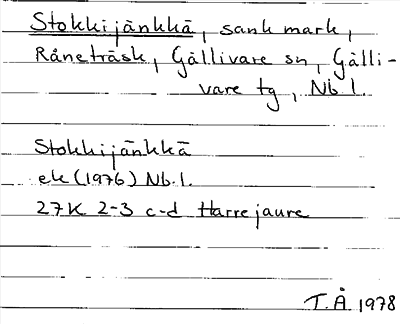 Stokkijänkkä, sank mark,
Råneträsk, Gällivare sn, Gälli-
vare tg, Nb l.
Stokkijänkkä
ek (1976) Nb.l.
27K 2-3 c-d Harrejaure
T.Å 1978